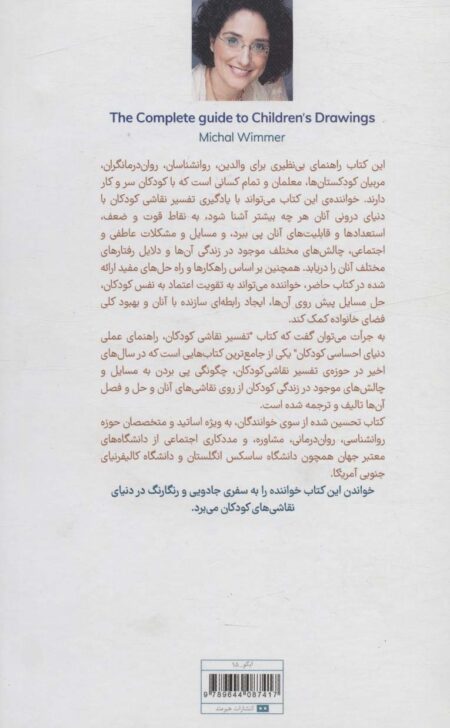 The Complete guide to Children's Drawings
Michal Wimmer
این کتاب راهنمای بی‌نظیری برای والدین، روانشناسان، روان‌درمانگران،
مربیان کودکستان‌ها، معلمان و تمام کسانی است که با کودکان سر و کار
دارند. خواننده‌ی این کتاب می‌تواند با یادگیری تفسیر نقاشی کودکان با
دنیای درونی آنان هر چه بیشتر آشنا شود، به نقاط قوت و ضعف،
استعدادها و قابلیت‌های آنان پی ببرد، و مسایل و مشکلات عاطفی و
اجتماعی، چالش‌های مختلف موجود در زندگی آن‌ها و دلایل رفتارهای
مختلف آنان را دریابد. همچنین بر اساس راهکارها و راه حل‌های مفید ارائه
شده در کتاب حاضر، خواننده می‌تواند به تقویت اعتماد به نفس کودکان،
حل مسایل پیش روی آن‌ها، ایجاد رابطه‌ای سازنده با آنان و بهبود کلی
فضای خانواده کمک کند.
به جرأت می‌توان گفت که کتاب "تفسیر نقاشی کودکان، راهنمای عملی
دنیای احساسی کودکان" یکی از جامع‌ترین کتاب‌هایی است که در سال‌های
اخیر در حوزه‌ی تفسیر نقاشی‌کودکان، چگونگی پی بردن به مسایل و
چالش‌های موجود در زندگی کودکان از روی نقاشی‌های آنان و حل و فصل
آن‌ها تالیف و ترجمه شده است.
کتاب تحسین شده از سوی خوانندگان، به ویژه اساتید و متخصصان حوزه
روانشناسی، روان‌درمانی، مشاوره، و مددکاری اجتماعی از دانشگاه‌های
معتبر جهان همچون دانشگاه ساسکس انگلستان و دانشگاه کالیفرنیای
جنوبی آمریکا.
خواندن این کتاب خواننده را به سفری جادویی و رنگارنگ در دنیای
نقاشی‌های کودکان می‌برد.
ایگو_۹۵
9 789644 087417
انتشارات هیرمند